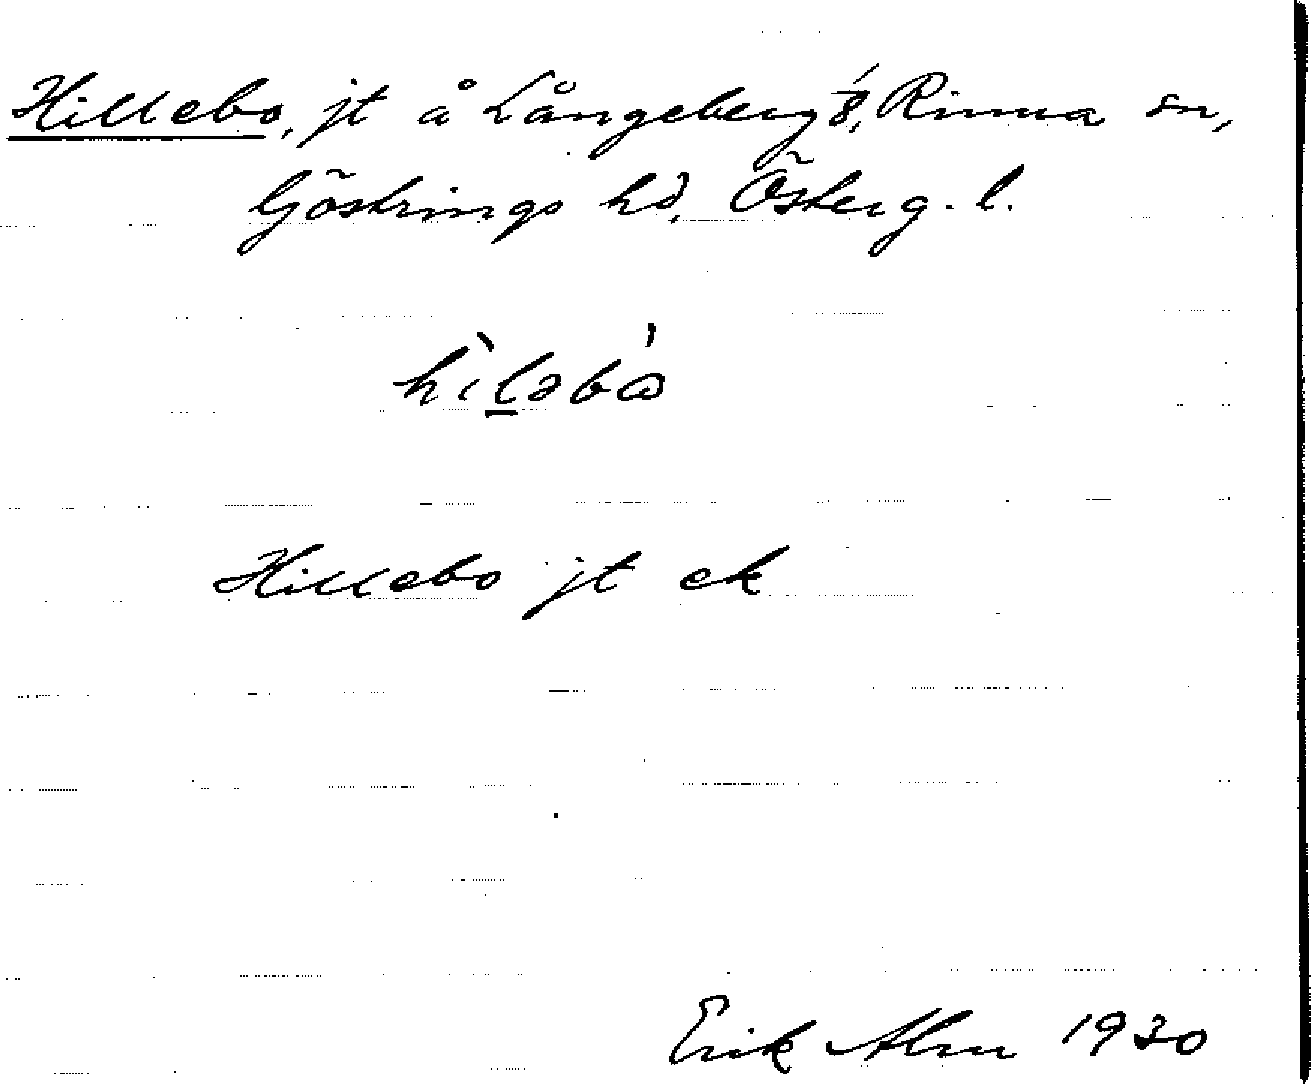 Hillebo, jt å Långeberg 1/8, Rinna sn,
Göstrings hd, Österg. l.
hìləbó
Hillebo jt ek
Erik Alm 1930